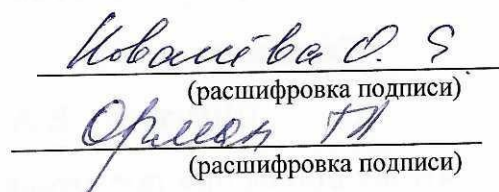 Ковалёва О. Я
(расшифровка подписи)
Орман
(расшифровка подписи)